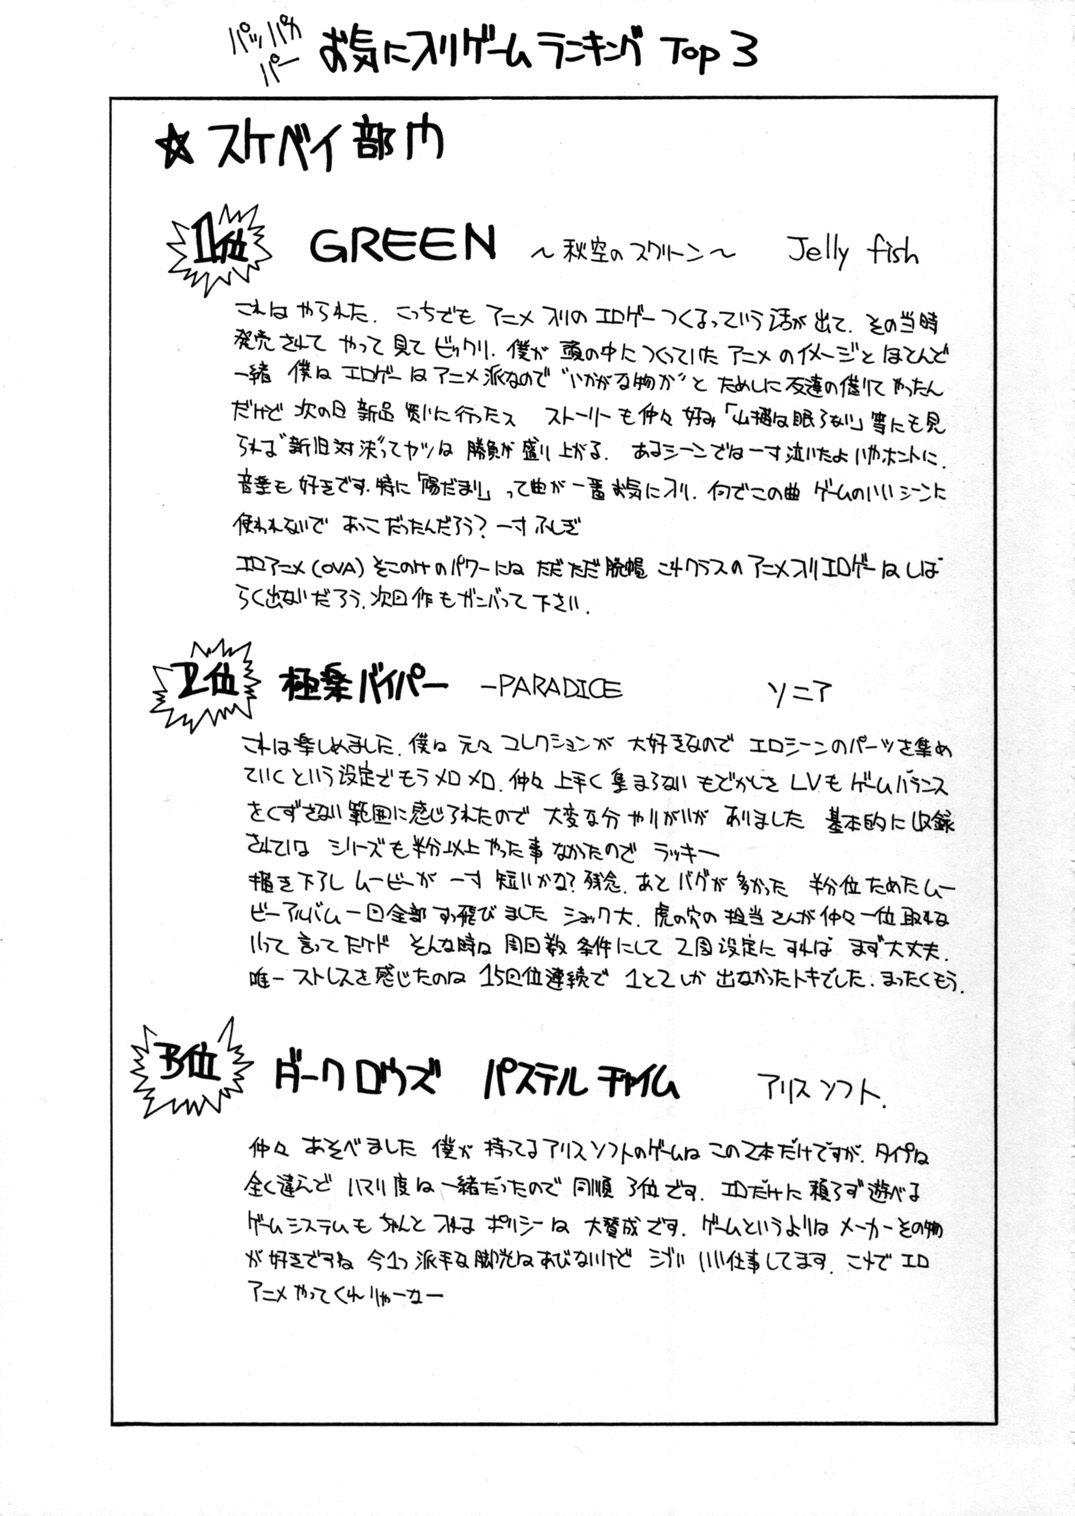 パッパカ
パー
お気に入りゲームランキング Top 3
☆ スケベイ部門
1位 GREEN ～秋空のスクリーン～ Jelly fish
これはやられた. こっちでも アニメ入りのエロゲーつくるっていう話が出て. その当時
発売されて やって見てビックリ. 僕が 頭の中につくっていた アニメのイメージと ほとんど
一緒 僕は エロゲーはアニメ派なので "いかがな物か" と ためしに友達の借りてやったん
だけど 次の日 新品 買いに行ったス ストーリーも仲々 好み 「山猫は眠らない」等にも見
られば 新旧対決ってヤツは 勝負が盛り上がる. あるシーンでは一寸泣いたよ いやホントに.
音楽も 好きです. 特に「陽だまり」って曲が一番お気に入り. 何でこの曲 ゲームのいいシーンに
使われないで おっこだったんだろう? 一寸ふしぎ
エロアニメ(OVA)そこのけのパワーには ただただ脱帽 これクラスのアニメ入りエロゲーはしば
らく出ないだろう. 次回作もガンバって下さい.
2位 極楽バイパー -PARADICE ソニア
これは楽しめました. 僕は元々 コレクションが 大好きなので エロシーンのパーツを集め
ていくという設定でもうメロメロ. 仲々 上手く集まらない もどかしさ LVもゲームバランス
をくずさない範囲に感じられたので 大変な分 やりがいが ありました 基本的に収録
されている シリーズも半分以上やった事なかったので ラッキー
描き下ろしムービーが 一寸 短いかな? 残念. あと バグが多かった 半分位ためたムー
ビーアルバム一回全部すっ飛びました ショック大. 虎の穴の担当さんが仲々一位取れな
いって言ってたけド そんな時は 周回数 条件にして 2周設定にすれば まず大丈夫.
唯一ストレスを感じたのは 15回位連続で 1と2しか 出なかったトキでした. まったくもう.
3位 ダークロウズ パステルチャイム アリスソフト.
仲々 あそべました 僕が持ってるアリスソフトのゲームは この2本だけですが. タイプは
全く違んど ハマリ度は一緒だったので 同順 3位です. エロだけに頼らず遊べる
ゲームシステムもちゃんと入れる ポリシーは 大賛成です. ゲームというよりは メーカーその物
が好きですね 今1つ派手な脚光はあびないけど シブい いい仕事してます. これで エロ
アニメやってくれりゃーなー